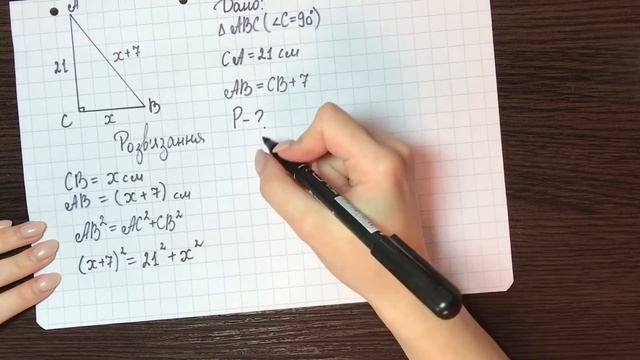 A
21
x+7
C
x
B
Дано:
△ABC (∠C=90°)
CA=21 см
AB=CB+7
P-?
Розвізання
CB = x см
AB = (x+7) см
AB²=AC²+CB²
(x+7)²=21²+x²